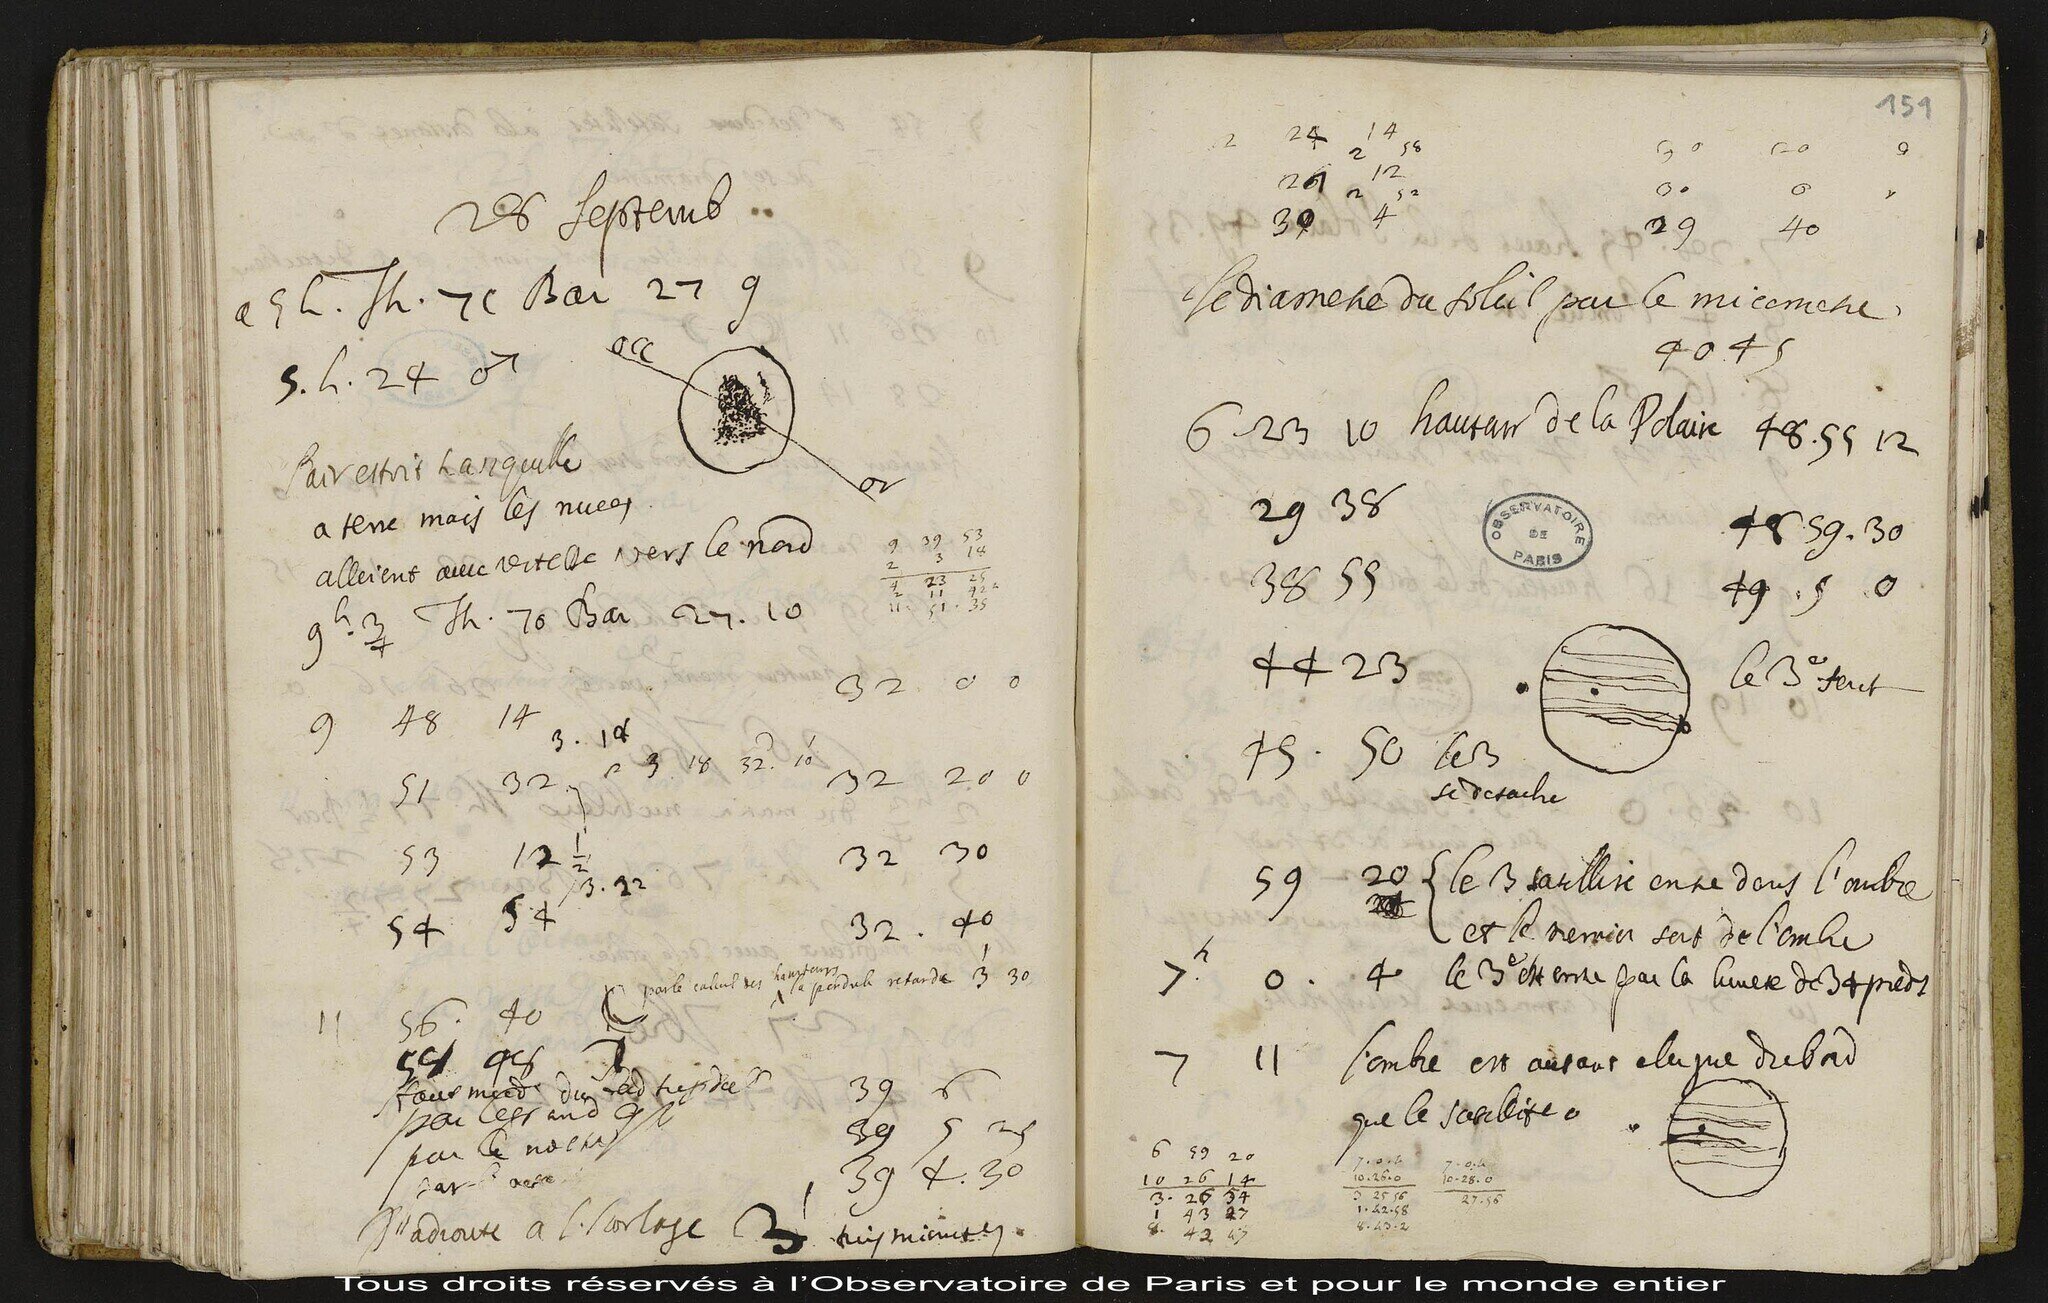 28 Septemb
a 5 h. Th. 70 Bar 27 9
5. h. 24 ♂
occ
or
l'air estoit tranquille
a terre mais les nuees
alloient avec vitesse vers le nord
9 39 53
2 3 18
23 25
2 11 42
11. 51. 35
9 h. 3/4 Th. 70 Bar 27. 10
32 0 0
9 48 14
3. 18
51 32
3 18 32 10
32 20 0
53 12 1/2
32 30
3. 22
54 54
32. 40
par le calcul des hauteurs la pendule retarde 3 30
11 56. 40
39 6
par le grand
39 5 25
par le
39 4. 30
a l'horloge 3 trois minutes
151
2 24 14
2 58
30 20 0
12
2 52
30 0
4
29 40
le diametre du soleil par le micometre
40.45
6 23 10 hauteur de la Polaire 48.55 12
29 38
48 59. 30
OBSERVATOIRE DE PARIS
38 55
49. 5 0
44 23
le 3e sort
45. 50 le 3
se detache
59 20 le 3 satellite entre dans l'ombre
et le premier sort de l'ombre
7 h. 0. 4 le 3e est entre par la lunete de 34 pieds
7 11 l'ombre est autant eloignee du bord
que le satellite
6 59 20
10 26 14
3. 26 54
1 43 27
8. 42 47
7. 0. 4
10. 26. 0
3 25 56
1. 42. 58
8. 43. 2
7. 0. 4
10. 28. 0
27. 56
Tous droits réservés à l'Observatoire de Paris et pour le monde entier